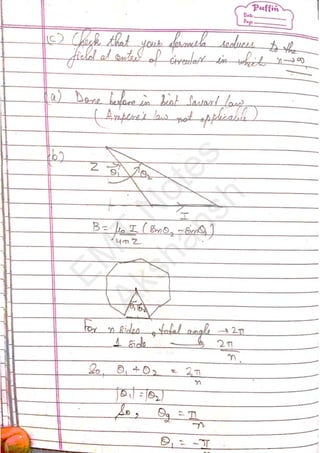 Puffin
Date
Page
(c) Check that your formula reduces to the
field at center of circular in which n→∞.
(a) Done before in Biot Savart law
(Ampere's law not applicable)
(b)
Z θ₁ θ₂
I
B = μ₀ I (Sinθ₂ - Sinθ₁)
4πZ
θ₁ θ₂
For n sides, total angle → 2π
1 side → 2π
n.
So, θ₁ + θ₂ = 2π
n
|θ₁| = |θ₂|
So, θ₂ = π
n
θ₁ = -π
n
EMT Notes
Akshansh